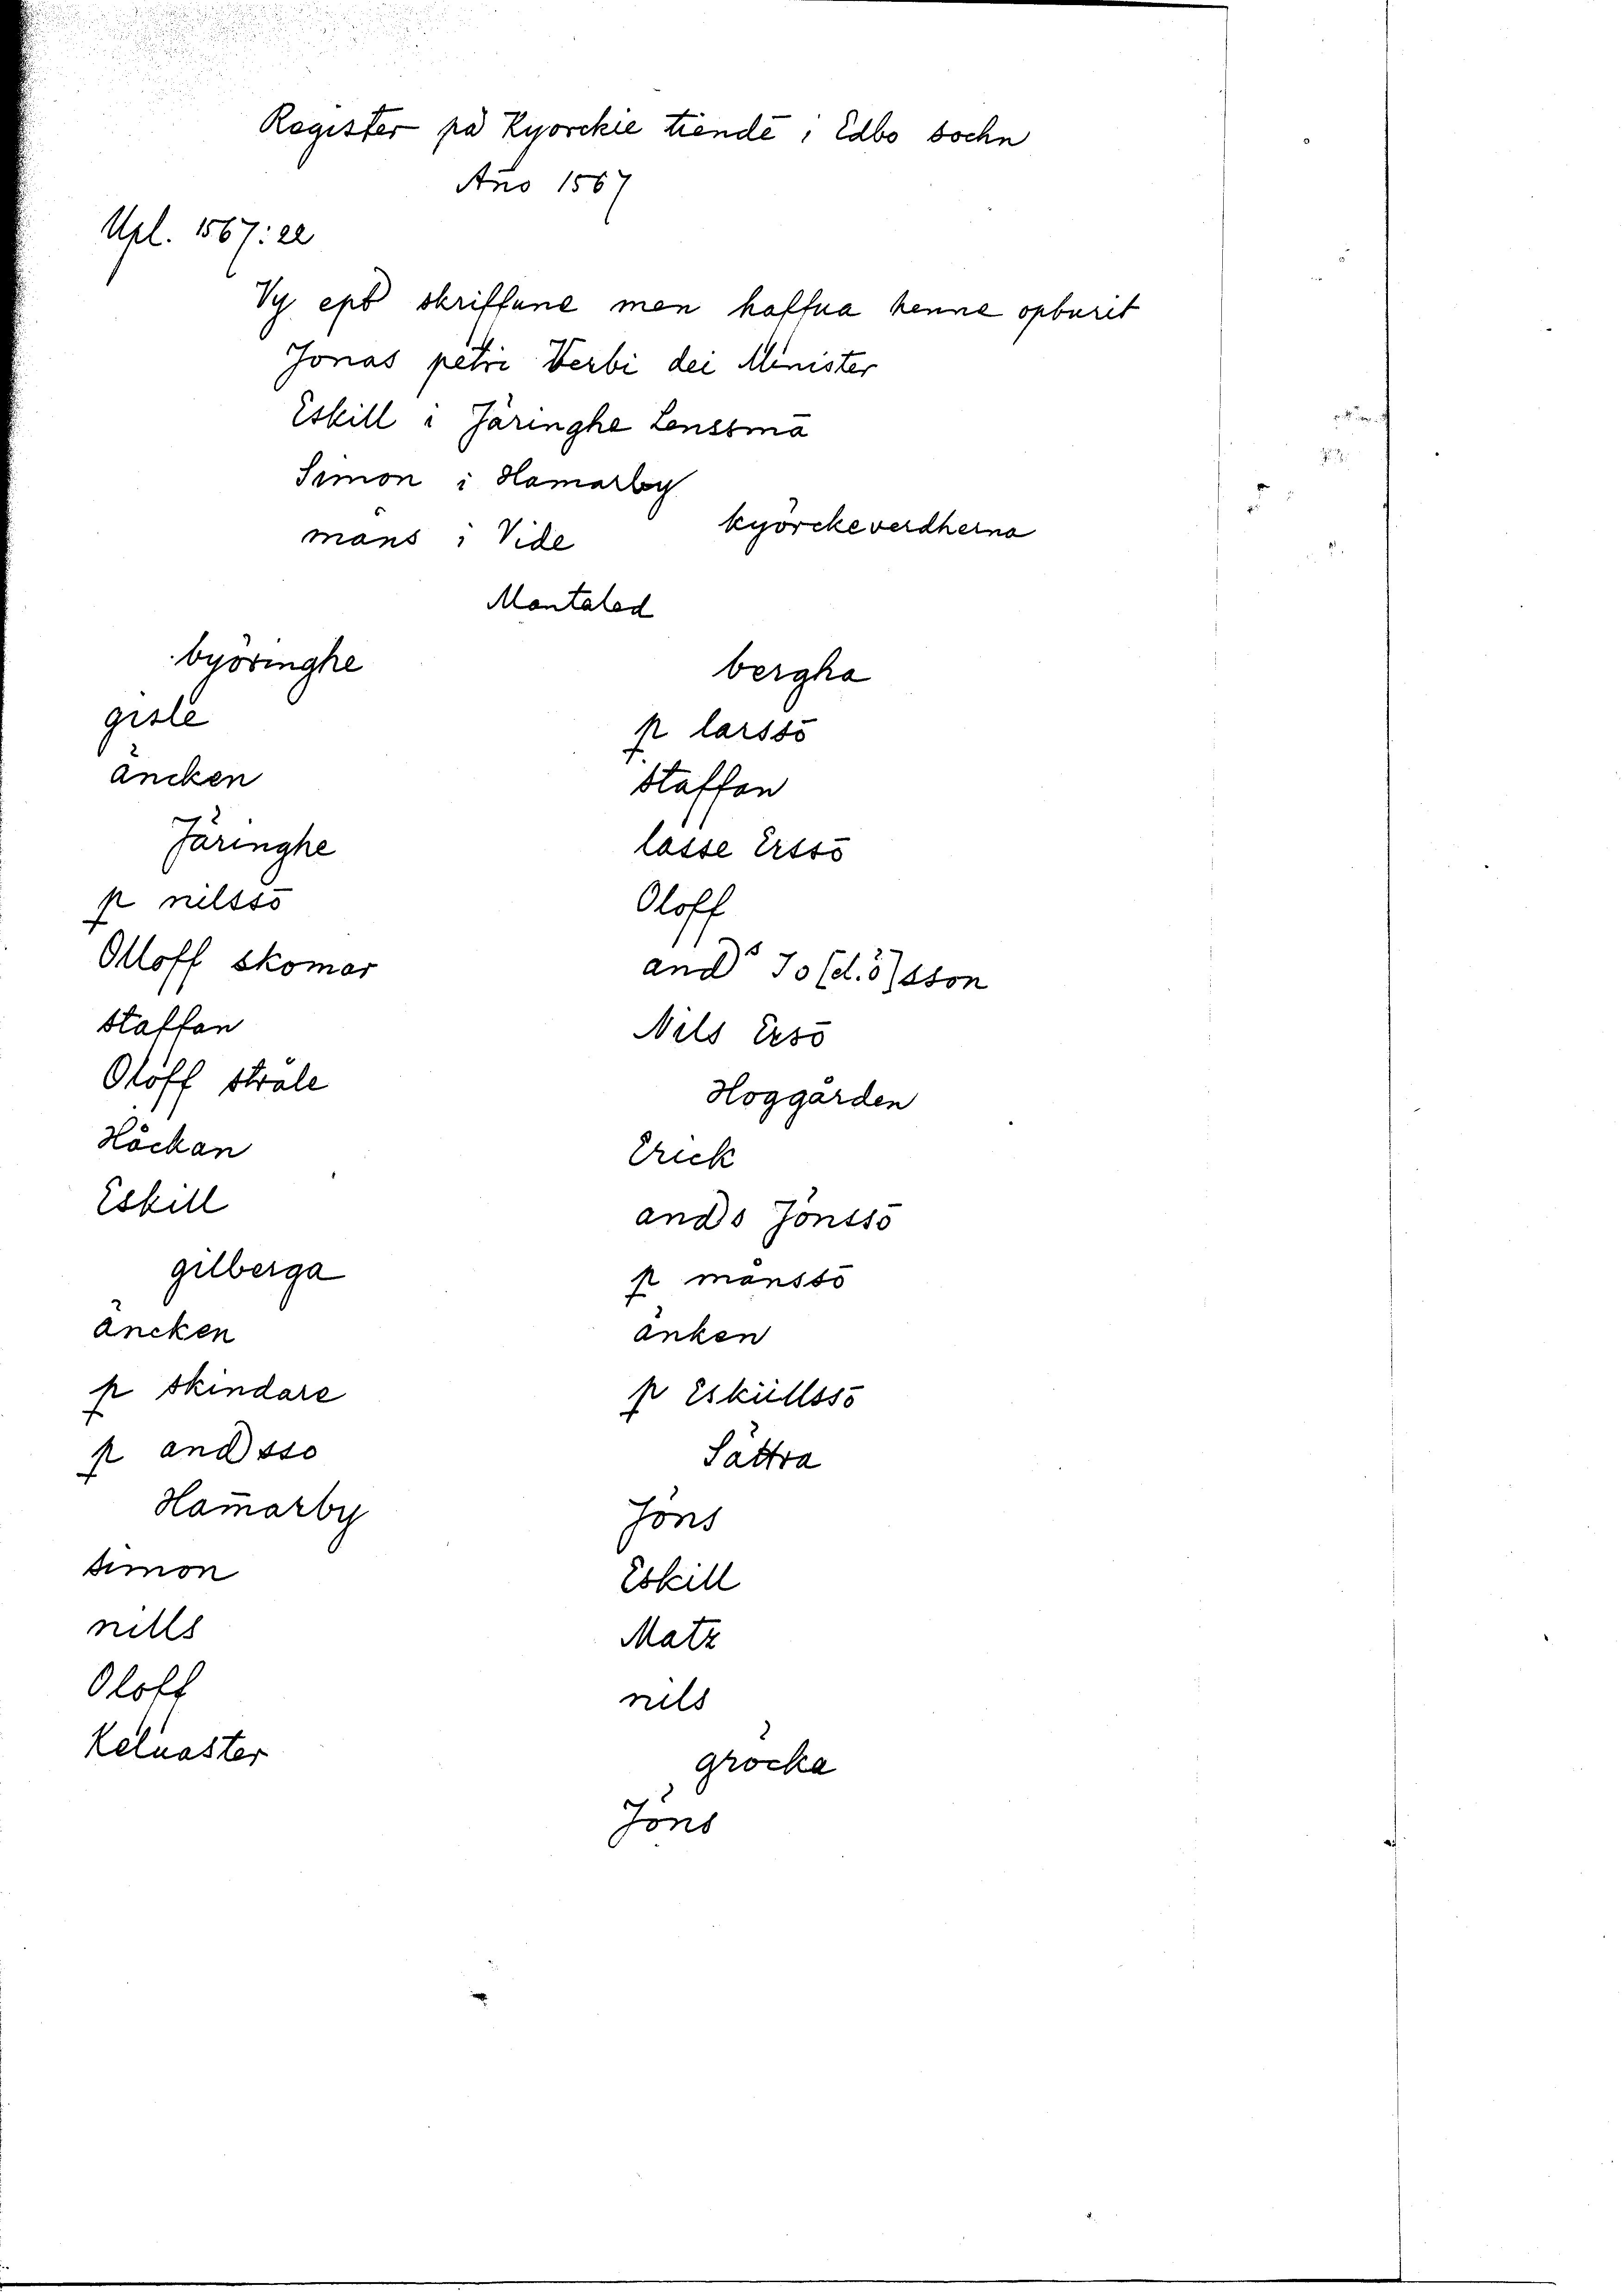 Register på Kyorckie tiende i Edbo sochn
Año 1567
Upl. 1567:22
Vy epͭ skriffune men haffua henne opburit
Jonas petri Verbi dei Minister
Eskill i Järinghe Lenssmā
Simon i Hamarby
måns i Vide
kyörckeverdherna
Mantaled
byöringhe
gisle
äncken
Järinghe
p nilssō
Olloff skomar
staffan
Oloff stråle
Håckan
Eskill
gilberga
äncken
p skindare
p andsso
Ham̄arby
simon
nills
Oloff
Keluaster
bergha
p larssō
staffan
lasse Erssō
Oloff
ands Jo[d.ö]sson
Nils Ersō
Hoggården
Erick
ands Jönssō
p månssō
änken
p Esküllssō
Sättra
Jöns
Eskill
Matz
nils
gröcka
Jöns